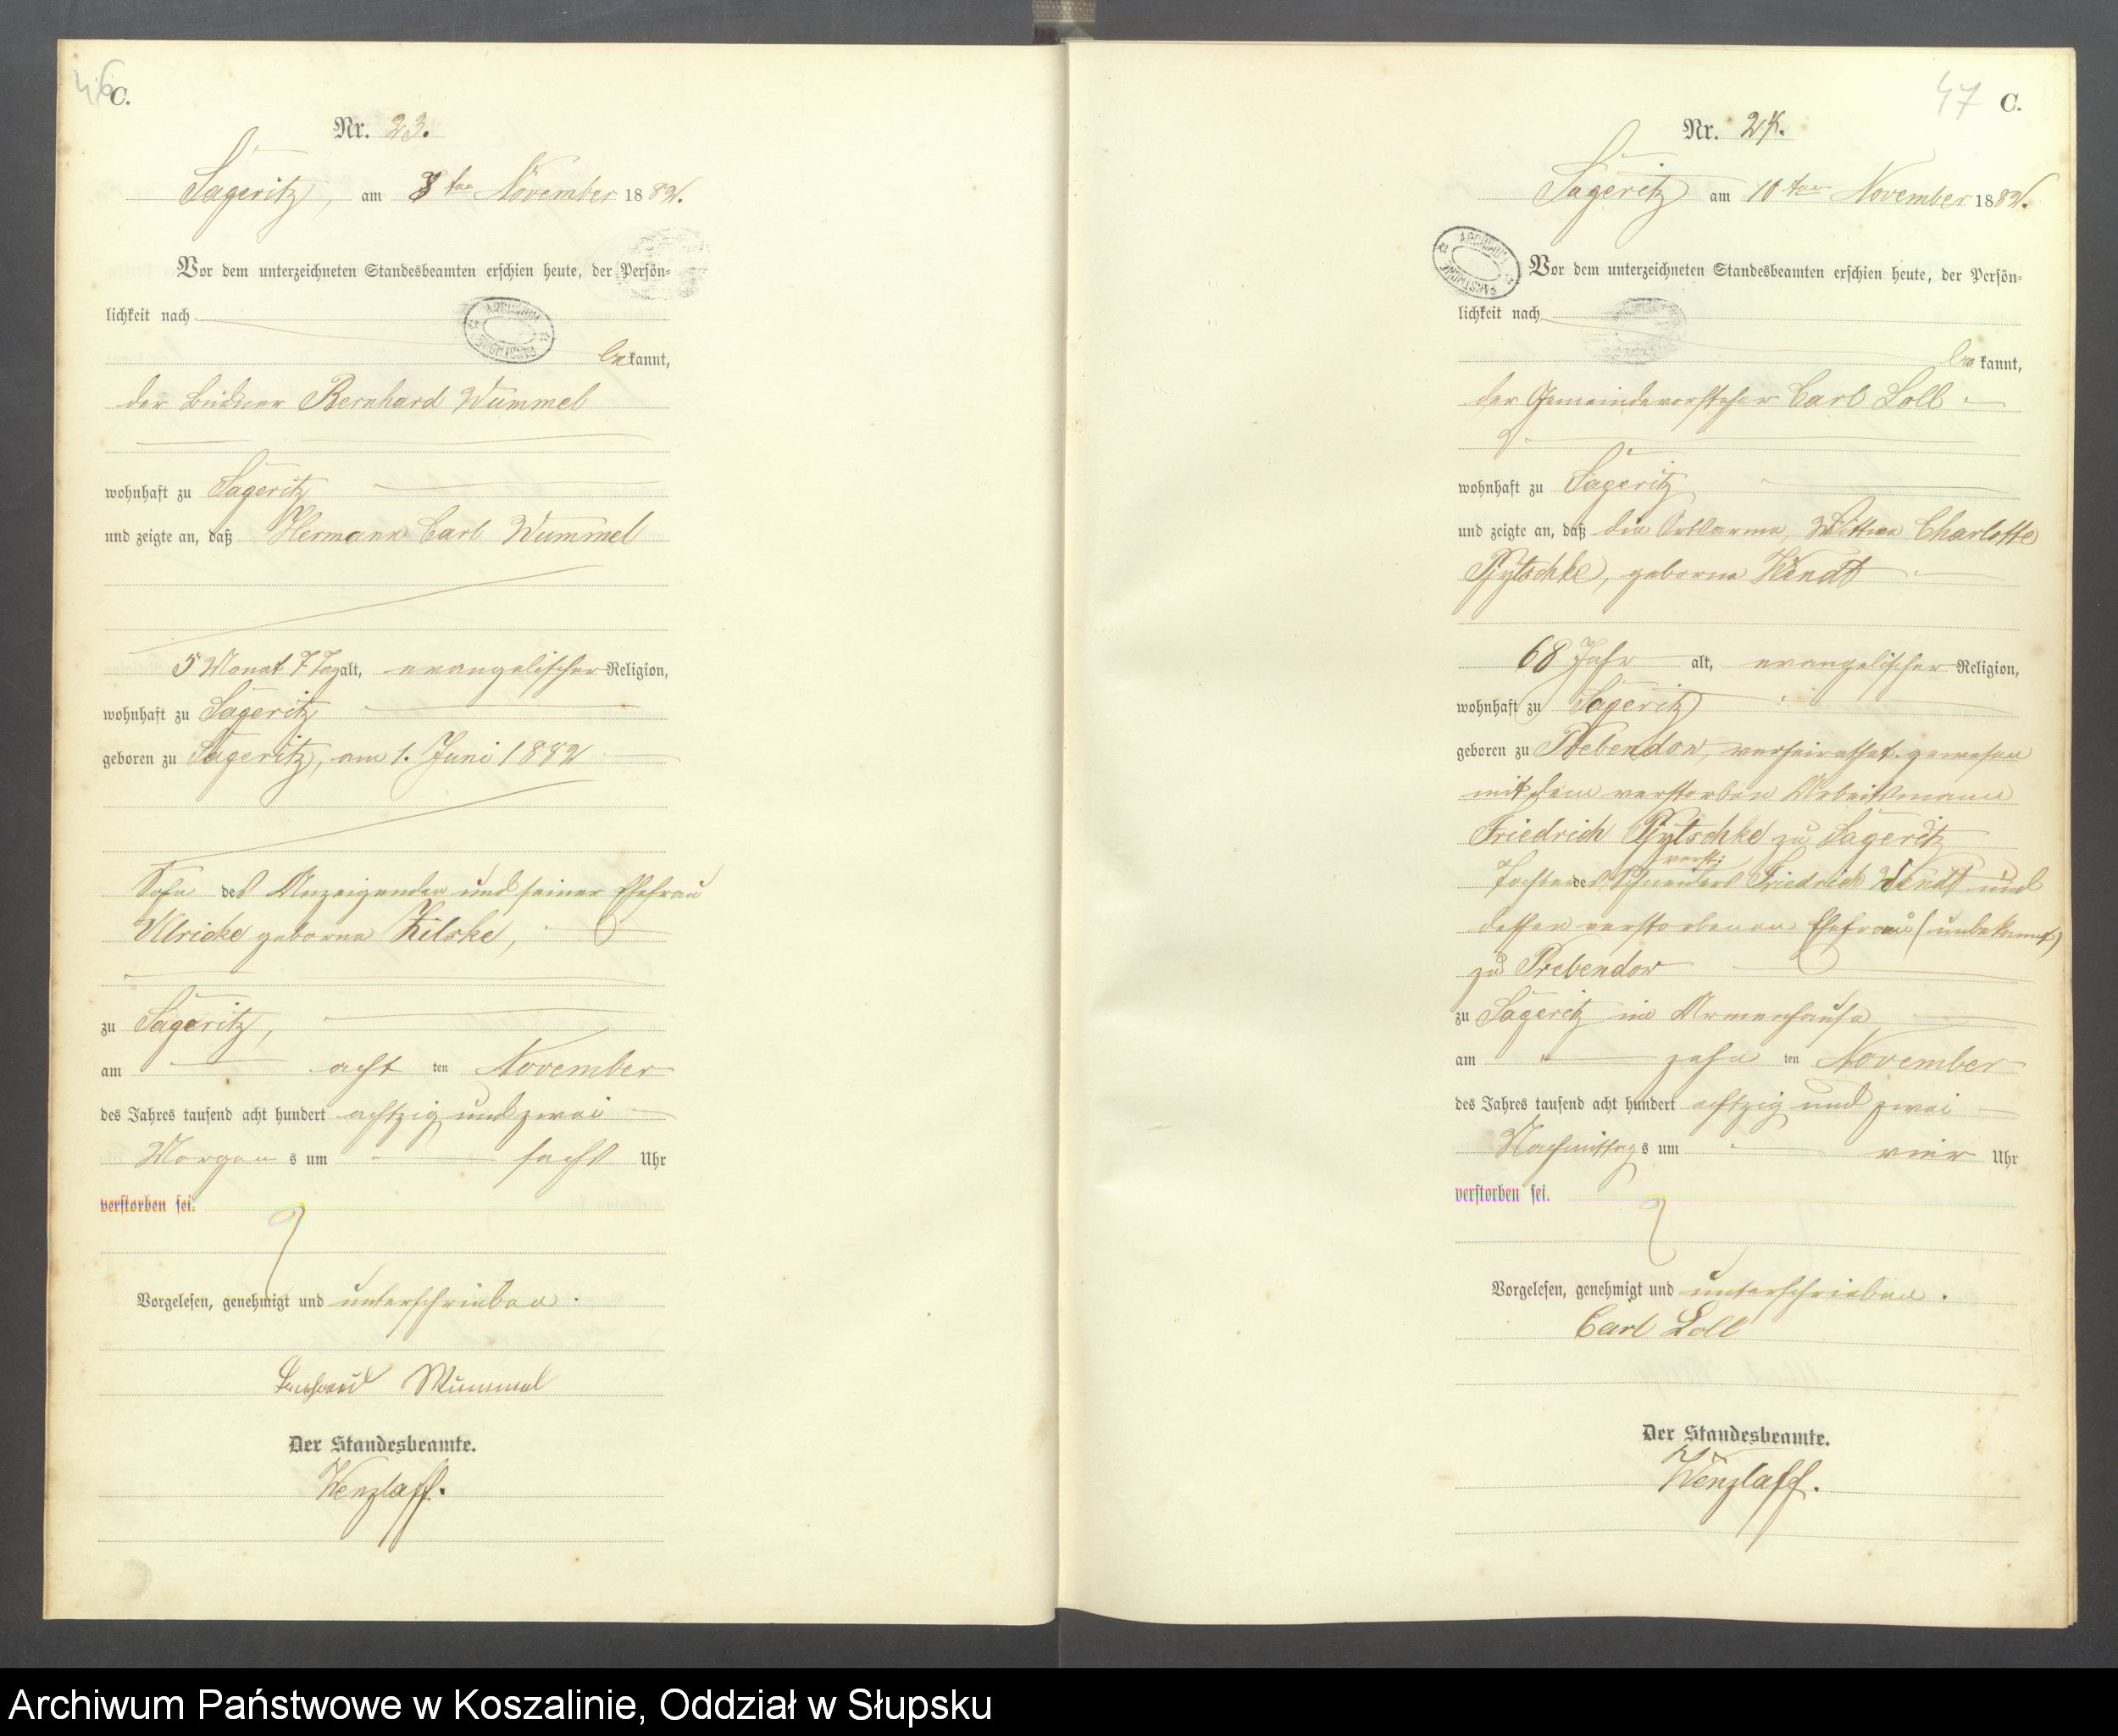 46
C.
Nr. 23.
Sageritz, am 8ten November 1882.
Vor dem unterzeichneten Standesbeamten erschien heute, der Persön-
lichkeit nach
bekannt,
der Büdner Bernhard Wummel
wohnhaft zu Sageritz
und zeigte an, daß Hermann Carl Wummel
5 Monat 7 Tag alt, evangelischer Religion,
wohnhaft zu Sageritz
geboren zu Sageritz, am 1. Juni 1882
Sohn des Anzeigenden und seiner Ehefrau
Ulricke geborne
zu Sageritz,
am acht ten November
des Jahres tausend acht hundert achtzig und zwei
Morgens um sechs Uhr
verstorben sei.
Vorgelesen, genehmigt und unterschrieben.
Bernhard Wummel
Der Standesbeamte.
Wenzlaff.
47
C.
Nr. 24.
Sageritz am 10ten November 1882.
ARCHIWUM
Vor dem unterzeichneten Standesbeamten erschien heute, der Persön-
lichkeit nach
bekannt,
der Gemeindevorsteher Carl Loll
wohnhaft zu Sageritz
und zeigte an, daß die Ortsarme, Wittwe Charlotte
Pytschke, geborne Wendt
68 Jahr alt, evangelischer Religion,
wohnhaft zu Sageritz
geboren zu Prebendow, verheirathet gewesen
mit dem verstorben Arbeitsmann
Friedrich Pytschke zu Sageritz
Tochter des verst: Schneiders Friedrich Wendt und
dessen verstorbenen Ehefrau (unbekannt)
zu Prebendow
zu Sageritz im Armenhause
am zehn ten November
des Jahres tausend acht hundert achtzig und zwei
Nachmittags um vier Uhr
verstorben sei.
Vorgelesen, genehmigt und unterschrieben.
Carl Loll
Der Standesbeamte.
Wenzlaff.
Archiwum Państwowe w Koszalinie, Oddział w Słupsku